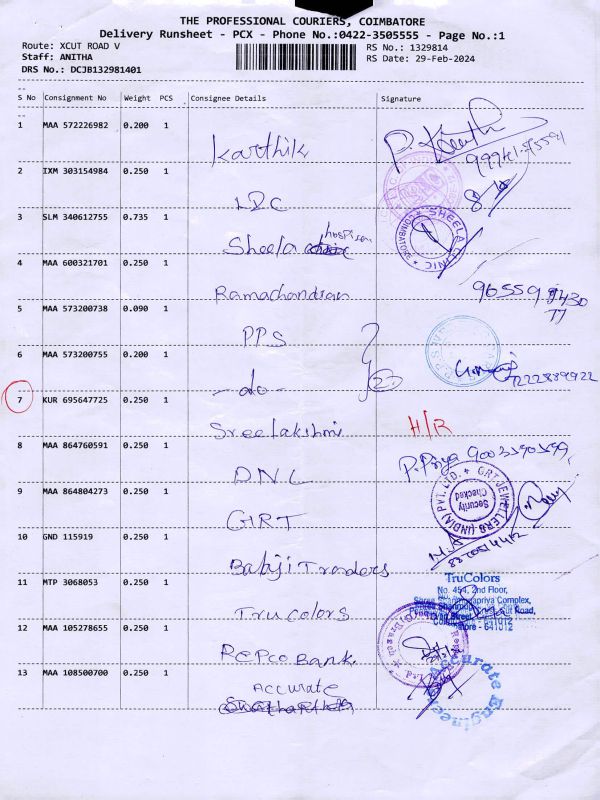 THE PROFESSIONAL COURIERS, COIMBATORE
Delivery Runsheet - PCX - Phone No.:0422-3505555 - Page No.:1
Route: XCUT ROAD V
RS No.: 1329814
Staff: ANITHA
RS Date: 29-Feb-2024
DRS No.: DCJB132981401
S No Consignment No Weight PCS Consignee Details Signature
1 MAA 572226982 0.200 1 Karthik
2 IXM 303154984 0.250 1 IDC
3 SLM 340612755 0.735 1 Sheela hospital SHEELA CLINIC COIMBATORE
4 MAA 600321701 0.250 1 Ramachandran
5 MAA 573200738 0.090 1 PPS
6 MAA 573200755 0.200 1 -do- 2
7 KUR 695647725 0.250 1 Sreelakshmi H/R
8 MAA 864760591 0.250 1 DNL P. Priya
9 MAA 864804273 0.250 1 GRT GRT JEWELLERS (INDIA) PVT. LTD. Security Checked
10 GND 115919 0.250 1 Balaji Traders
11 MTP 3068053 0.250 1 Trucolors TruColors
No. 454, 2nd Floor,
12 MAA 105278655 0.250 1 Repco Bank.
13 MAA 108500700 0.250 1 Accurate Accurate Engineer